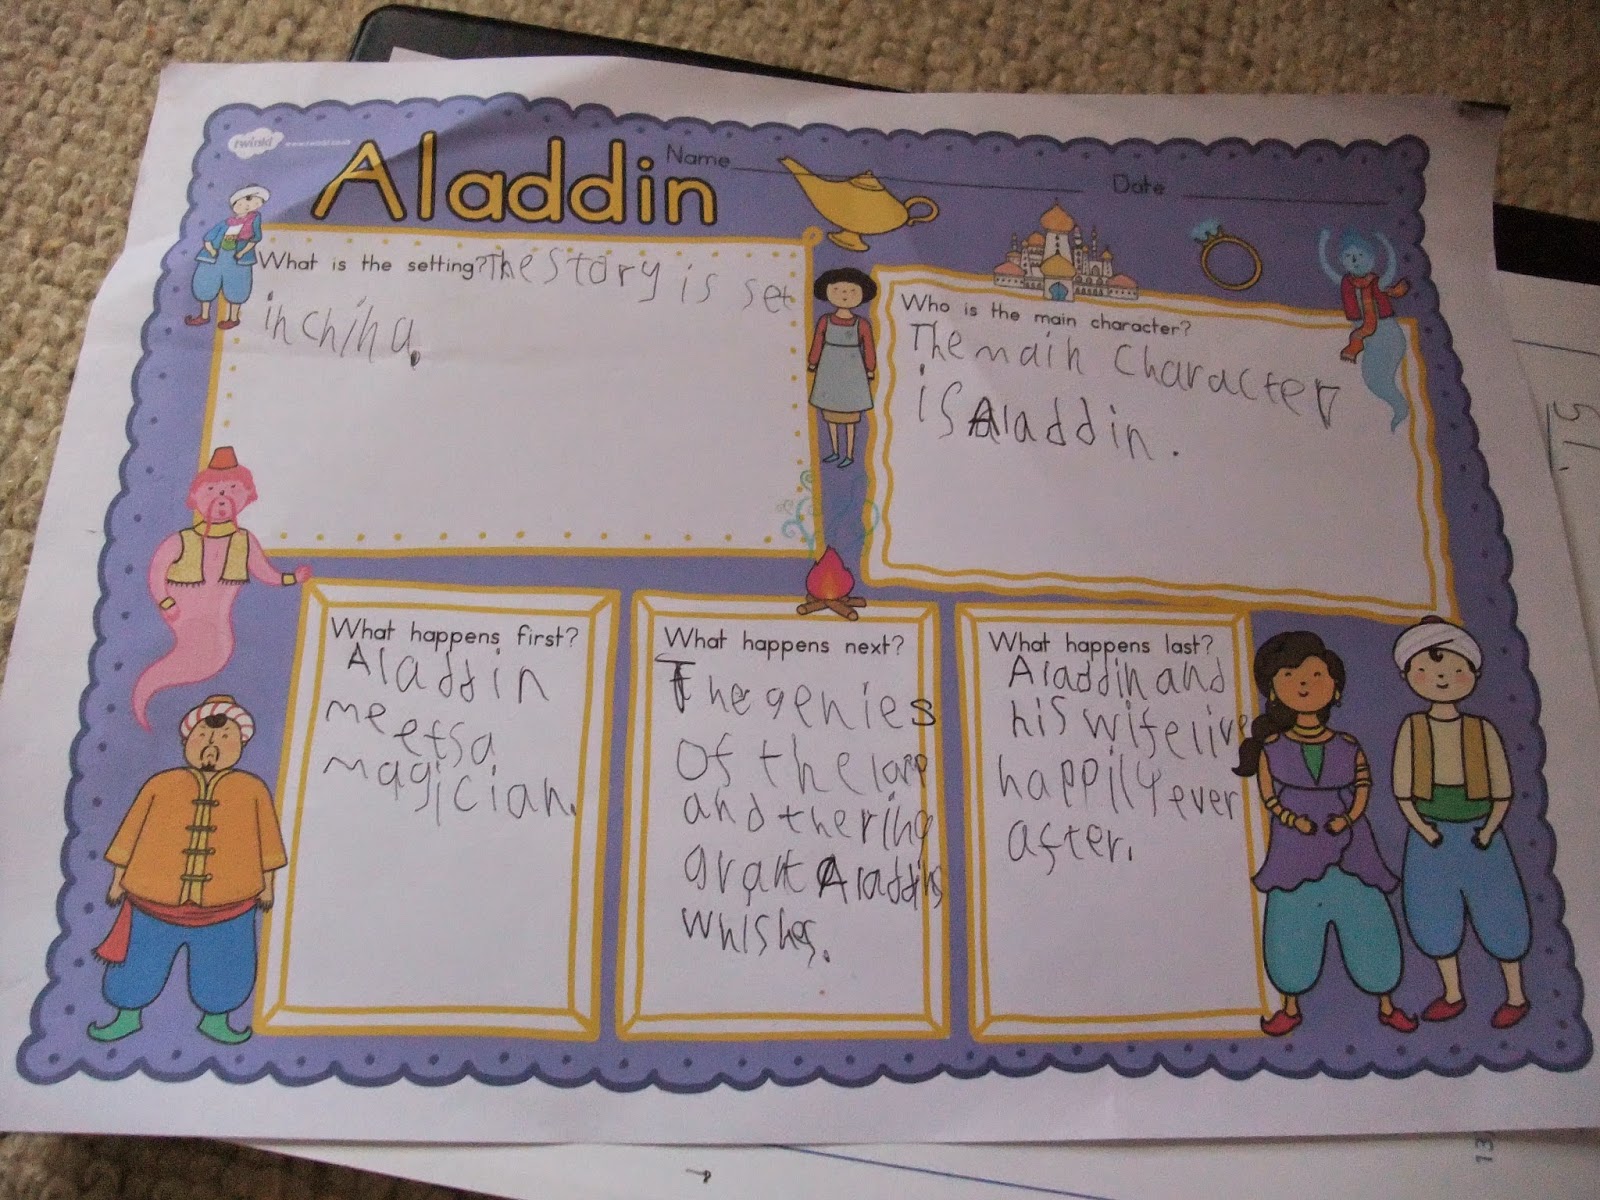 twinkl www.twinkl.co.uk
Aladdin
Name
Date
What is the setting? The Story is set
in china.
Who is the main character?
The main Character
is Aladdin.
What happens first?
Aladdin
meets a
magician.
What happens next?
The genies
of the lamp
and the ring
grant Aladdins
whishes.
What happens last?
Aladdin and
his wife live
happily ever
after.
13